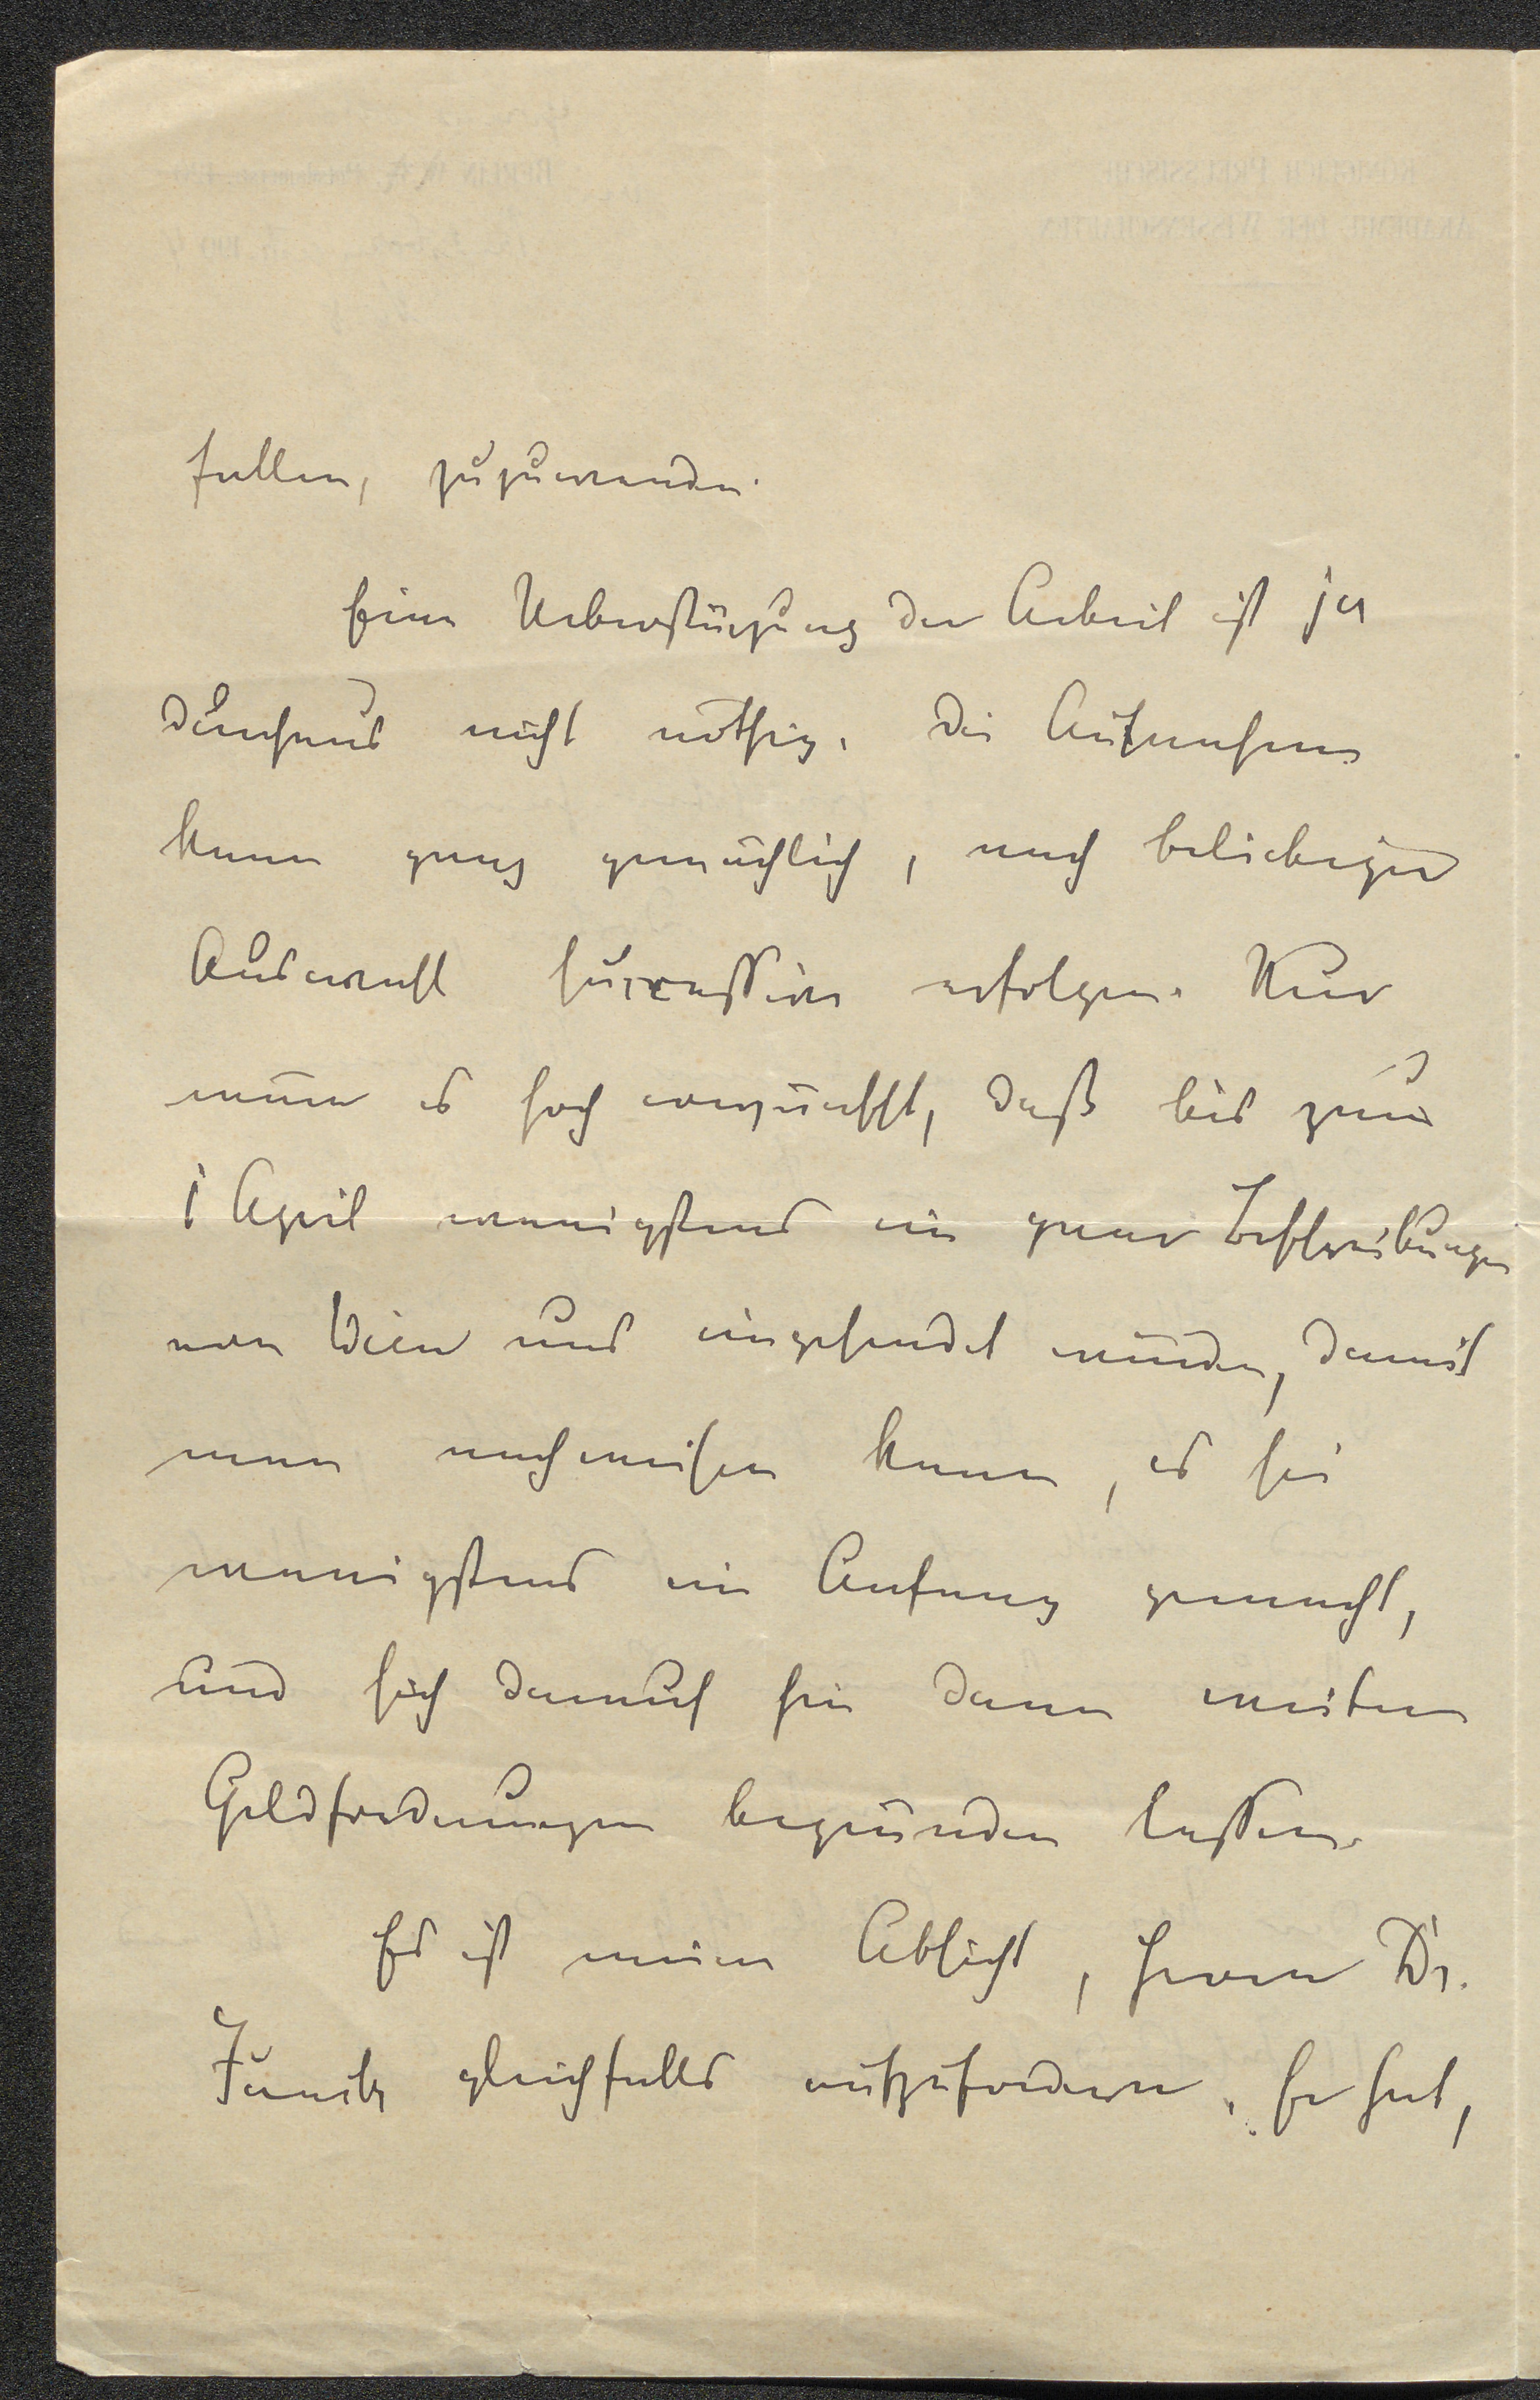 fallen, zuzuwenden.
Eine Ueberstürzung der Arbeit ist ja
durchaus nicht nöthig. Die Aufnahme
kann ganz gemächlich, nach beliebiger
Auswahl successive erfolgen. Nur
wäre es hoch erwünscht, daß bis zum
1 April wenigstens ein paar Beschreibungen
von Wien uns eingesendet würden, damit
man nachweisen kann, es sei
wenigstens ein Anfang gemacht,
und sich darauf hin dann weitere
Geldforderungen begründen lassen.
Es ist meine Absicht, Herrn Dr.
Junk gleichfalls aufzufordern. Er hat,